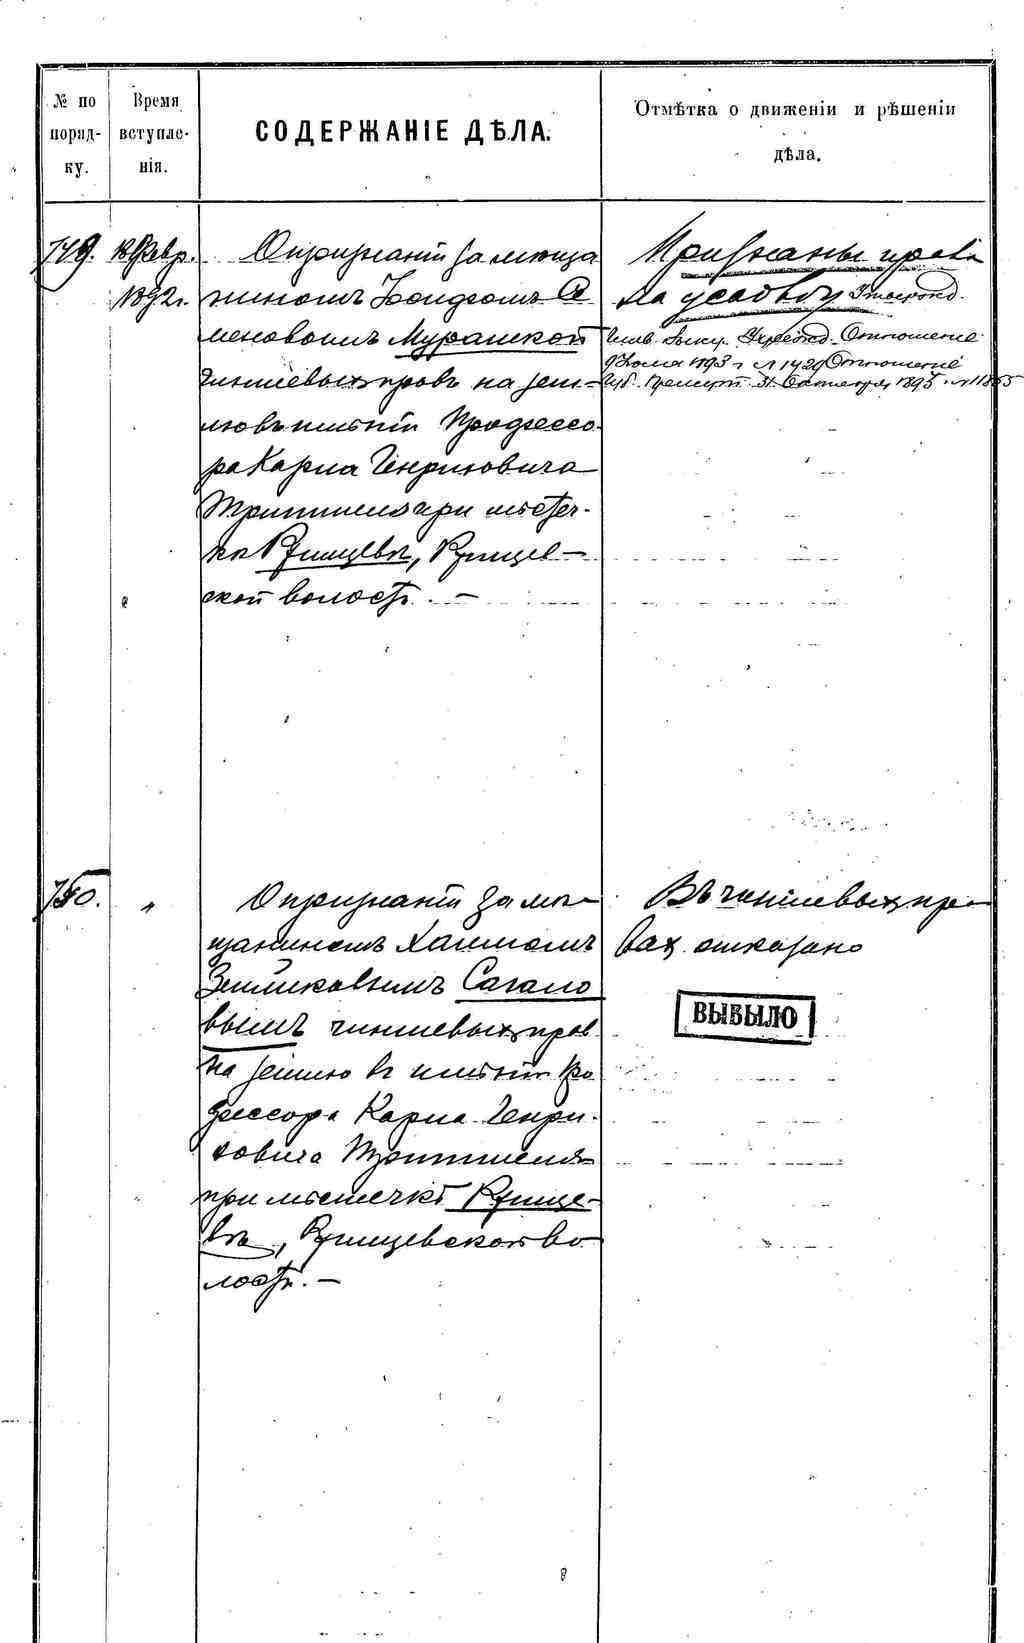 № по порядку.
Время вступленія.
СОДЕРЖАНІЕ ДѢЛА.
Отмѣтка о движеніи и рѣшеніи дѣла.
749.
18 Февр.
1892 г.
О признаніи за мѣща
ниномъ
меновымъ Мурашкой
чиншевыхъ правъ на зем-
лю въ имѣніи Профессо-
ра Карла Генриховича
Триттшеля при мѣстеч-
кѣ Ржищевѣ, Ржищев-
ской волости. —
Признаны права
на усадьбу
Отношеніе
9 1893 г. № 1429 Отношеніе
Губ. 1895 г. № 11865
750.
"
О признаніи за мѣ-
щаниномъ Хаимомъ
Сагало
вымъ чиншевыхъ прав
на землю въ имѣніи Про
фессора Карла Генри-
ховича Триттшеля
при мѣстечкѣ Ржище-
вѣ, Ржищевской во
лости. —
Въ чиншевыхъ пра-
вах отказано
ВЫБЫЛО